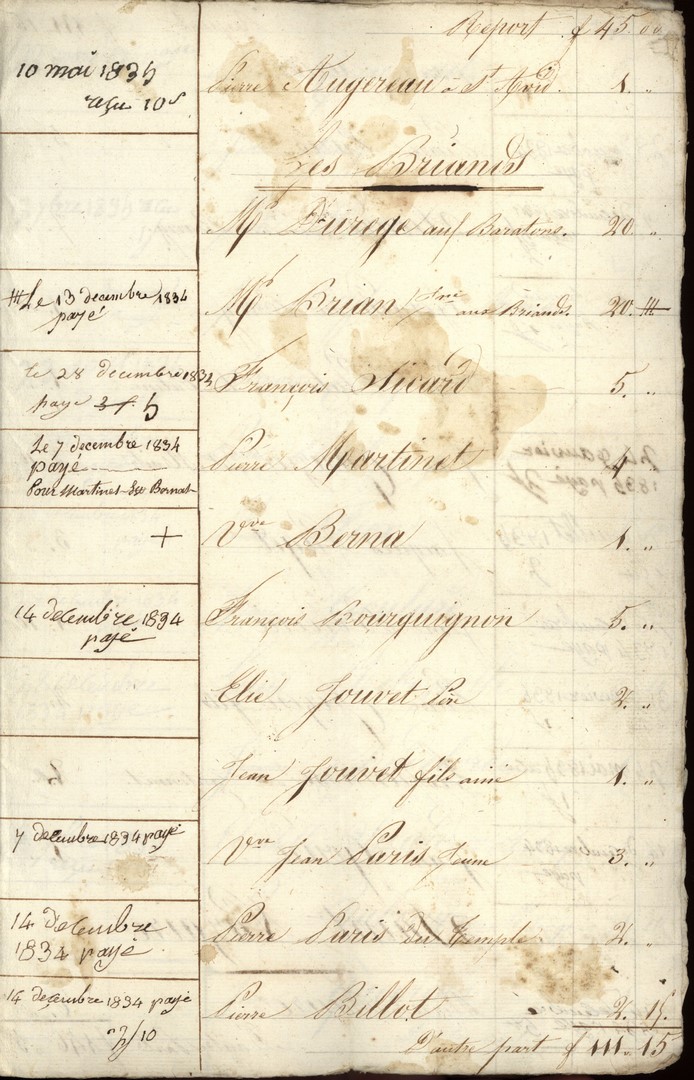 Report f 45 00
10 mai 1835
reçu 10 s
Pierre Augereau à St Avid. 1. "
Les Briands
Mr Durège aux Baratons. 20 "
Le 13 decembre 1834
payé
Mr Brian aux Briands. 20.
le 28 decembre 1834
paye 5
François Sicard 5. "
Le 7 decembre 1834
payé
Pour Martinet
Pierre Martinet 4 "
+ Vve Berna 1. "
14 decembre 1834
payé
François Bourguignon 5. "
Elie Jouvet Père 2. "
Jean Jouvet fils ainé 1. "
7 decembre 1834 payé
Vve Jean Paris Jeune 3. "
14 decembre
1834 payé
Pierre Paris du Temple 2. "
14 decembre 1834 payé
Pierre Billot 2. 15.
D'autre part f 111. 15